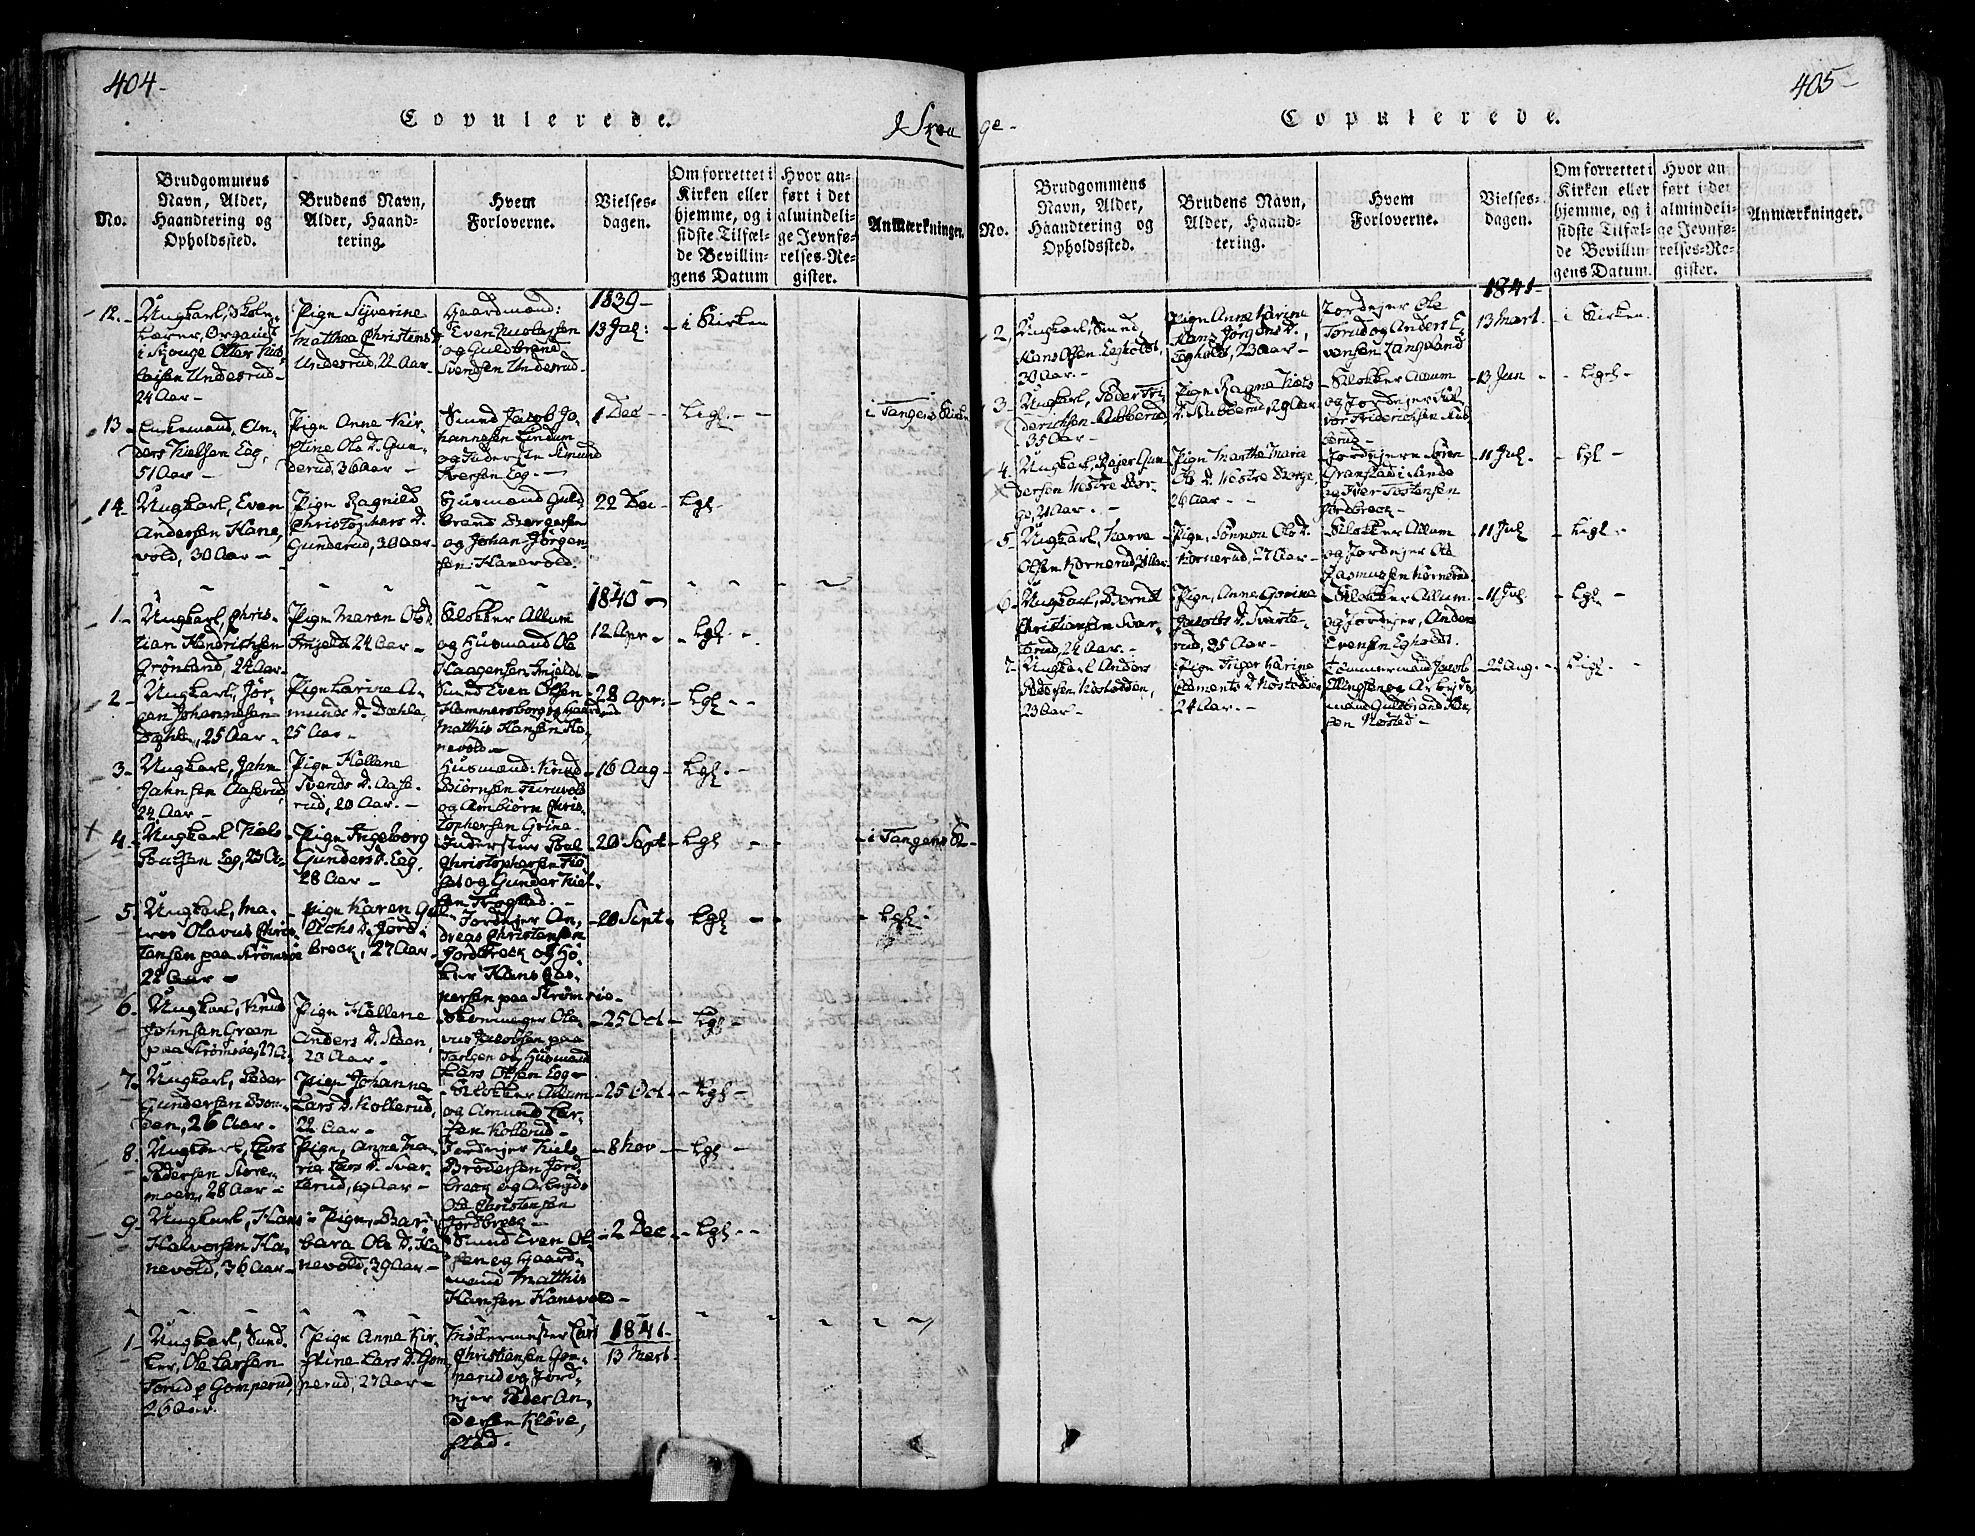 404-
Copulerede.
No.
Brudgommens
Navn, Alder,
Haandtering og
Opholdssted.
Brudens Navn,
Alder, Haand-
tering.
Hvem
Forloverne.
Vielses-
dagen.
Om forrettet i
Kirken eller
hjemme, og i
sidste Tilfæl-
de Bevillin-
gens Datum
Hvor an-
ført i det
almindeli-
ge Jevnfø-
relses-Re-
gister.
Anmærkninger.
12.-
Ungkarl, Skole-
lærer, Organist
i Skouge Otter
Underud-
24 Aar-
Pige Syverine
Mathea Christens D.
Underud, 22 Aar-
Gaardmænd:
Even Nicolaisen
og Guldbrand
Svendsen Underud-
1839-
13 Jul:
- i Kirken
13-
Enkemand, An-
ders Nielsen Eeg,
51 Aar-
Pige Anne Kir-
stine Ols D. Gun-
derud, 36 Aar-
Smed Jacob Jo-
hannesen Lindum
og Inderste Amund
Iversen Eeg.-
1 Dec-
Ligl.-
i Tangens Kirke
14-
Ungkarl, Even
Andersen Hane-
vold, 30 Aar-
Pige Ragnild
Christophers D.
Gunderud, 30 Aar-
Husmænd Guld-
brand
og Johan Jörgen-
sen: Hanevold.
22 Dec-
Lgl-
1840-
1.-
Ungkarl, Chris-
tian Hendrichsen
Grönland, 22 Aar-
Pige Maren Ols D.
24 Aar-
Klokker Allum
og Husmand Ole
Haagensen
12 Apr-
Lgl.-
2-
Ungkarl, Jör-
gen Johannesen
25 Aar-
Pige Karine A-
munds D. Dæhle,
25 Aar-
Smed Even Olsen
Hammersborg og Gaard
Matthis Hansen Ha-
nevold-
28 Apr:
Lgl.-
3-
Ungkarl, John
Johnsen Aaserud,
24 Aar-
Pige Hellene
Svends D. Aase-
rud, 20 Aar.-
Husmænd: Knud
Biörnsen
og Ambiörn Chris-
tophersen Grine-
16 Aug-
Lgl.-
4-
Ungkarl Niels
Paulsen Eeg, 23 A-
Pige Ingeborg
Gunders D. Eeg,
28 Aar-
Inderster Poul
Christophersen
og Gunder Niel-
sen
20 Sept-
Lgl
- i Tangens K-
5-
Ungkarl, Ma-
rus Olavus Chris-
tensen paa Strömsöe
22 Aar-
Pige Karen
D. Jord-
broek, 27 Aar-
Jordejer An-
dreas Christensen
Jordbroek og Hö-
ker Hans Cas-
persen paa Strömsöe-
20 Sept-
Lgl
Lgl-
6-
Ungkarl, Knud
Johnsen Green
paa Strömsöe, 27 A-
Pige Hellene
Anders D. Steen,
20 Aar-
Skomager Ola-
vus Jacobsen paa
Tangen og Husmand
Lars Olsen Eeg-
25 Oct-
Lgl-
7-
Ungkarl, Peder
Gundersen
26 Aar.-
Pige Johanne
Lars D. Kollerud,
22 Aar-
Klokker Allum
og Amund Lar-
sen Kollerud-
25 Oct-
Lgl-
8-
Ungkarl, Lars
Pedersen Store-
moen, 28 Aar-
Pige, Anne Ma-
rie Lars D. Svar-
terud, 19 Aar-
Jordejer Niels
Brödersen Jord-
broek og Arbejds
Ole Christensen
Jordbroek-
8 Nov-
Lgl-
9-
Ungkarl, Hans
Halvorsen Ha-
nevold, 36 Aar-
Pige, Bar-
bara Ole D. Ha-
nevold, 39 Aar-
Smed Even Ol-
sen og Gaard-
mand Matthis
Hansen Hanevold-
2 Dec-
Lgl-
1-
Ungkarl, Sned-
ker, Ole Larsen
Torud p Gomperud,
26 Aar.
Pige Anne Kir-
stine Lars D. Gom-
perud, 27 Aar-
Möllermester Lars
Christensen Gom-
perud og Jord-
ejer Peder An-
dersen Klöve-
stad.
1841-
13 Mart-
I Skou
ge-
405-
Copulerede.
No.
Brudgommens
Navn, Alder,
Haandtering og
Opholdssted.
Brudens Navn,
Alder, Haand-
tering.
Hvem
Forloverne.
Vielses-
dagen.
Om forrettet i
Kirken eller
hjemme, og i
sidste Tilfæl-
de Bevillin-
gens Datum.
Hvor an
ført i det
almindeli-
ge Jevnfø-
relses-Re-
gister.
Anmærkninger.
2,
Ungkarl, Smed
Hans Olsen Egholdt,
30 Aar-
Pige Anne Karine
Hans Jörgens D.
Egholdt, 23 Aar-
Jordejer Ole
Torud og Anders E-
vensen Langeland
1841-
13 Mart-
- i Kirken
3-
Ungkarl, Peder Fri-
derichsen Rabberud
35 Aar-
Pige Ragne Niels
D. Rabberud, 29 Aar-
Klokker Allum
og Jordejer Hal-
vor Friderichsen Rab-
berud-
13 Jun
- Ligl-
4-
Ungkarl, Rejer Gun-
dersen Nestre Bor-
ge, 21 Aar.-
Pige Marthe Marie
Ols D. Nestre Borge
26 Aar-
Jordejere Sören
Granstad i Sande
og Iver Tostensen
Jordbroek-
11 Jul.
Lgl-
5-
Ungkarl, Narve
Olsen Kornerud,
Pige, Sönnou Ols D.
Kornerud, 27 Aar-
Klokker Allum
og Jordejer Ole
Rasmussen Kornerud
11 Jul
Ligl-
6-
Ungkarl, Berndt
Christiansen Svar-
terud, 24 Aar.-
Pige, Anne Gorine
Jacobs D. Svarte-
rud, 25 Aar-
Klokker Allum
og Jordejer, Anders
Evensen Egholdt.
11 Jul
Lgl-
7-
Ungkarl Anders
Pedersen Nöstedden,
23 Aar-
Pige Inger Karine
Clements D. Nöstedden
24 Aar.-
Tömmermand Jacob
Ellingsen og Arbejds-
mand Guldbrand
Nöstad-
22 Aug.-
Ligl-